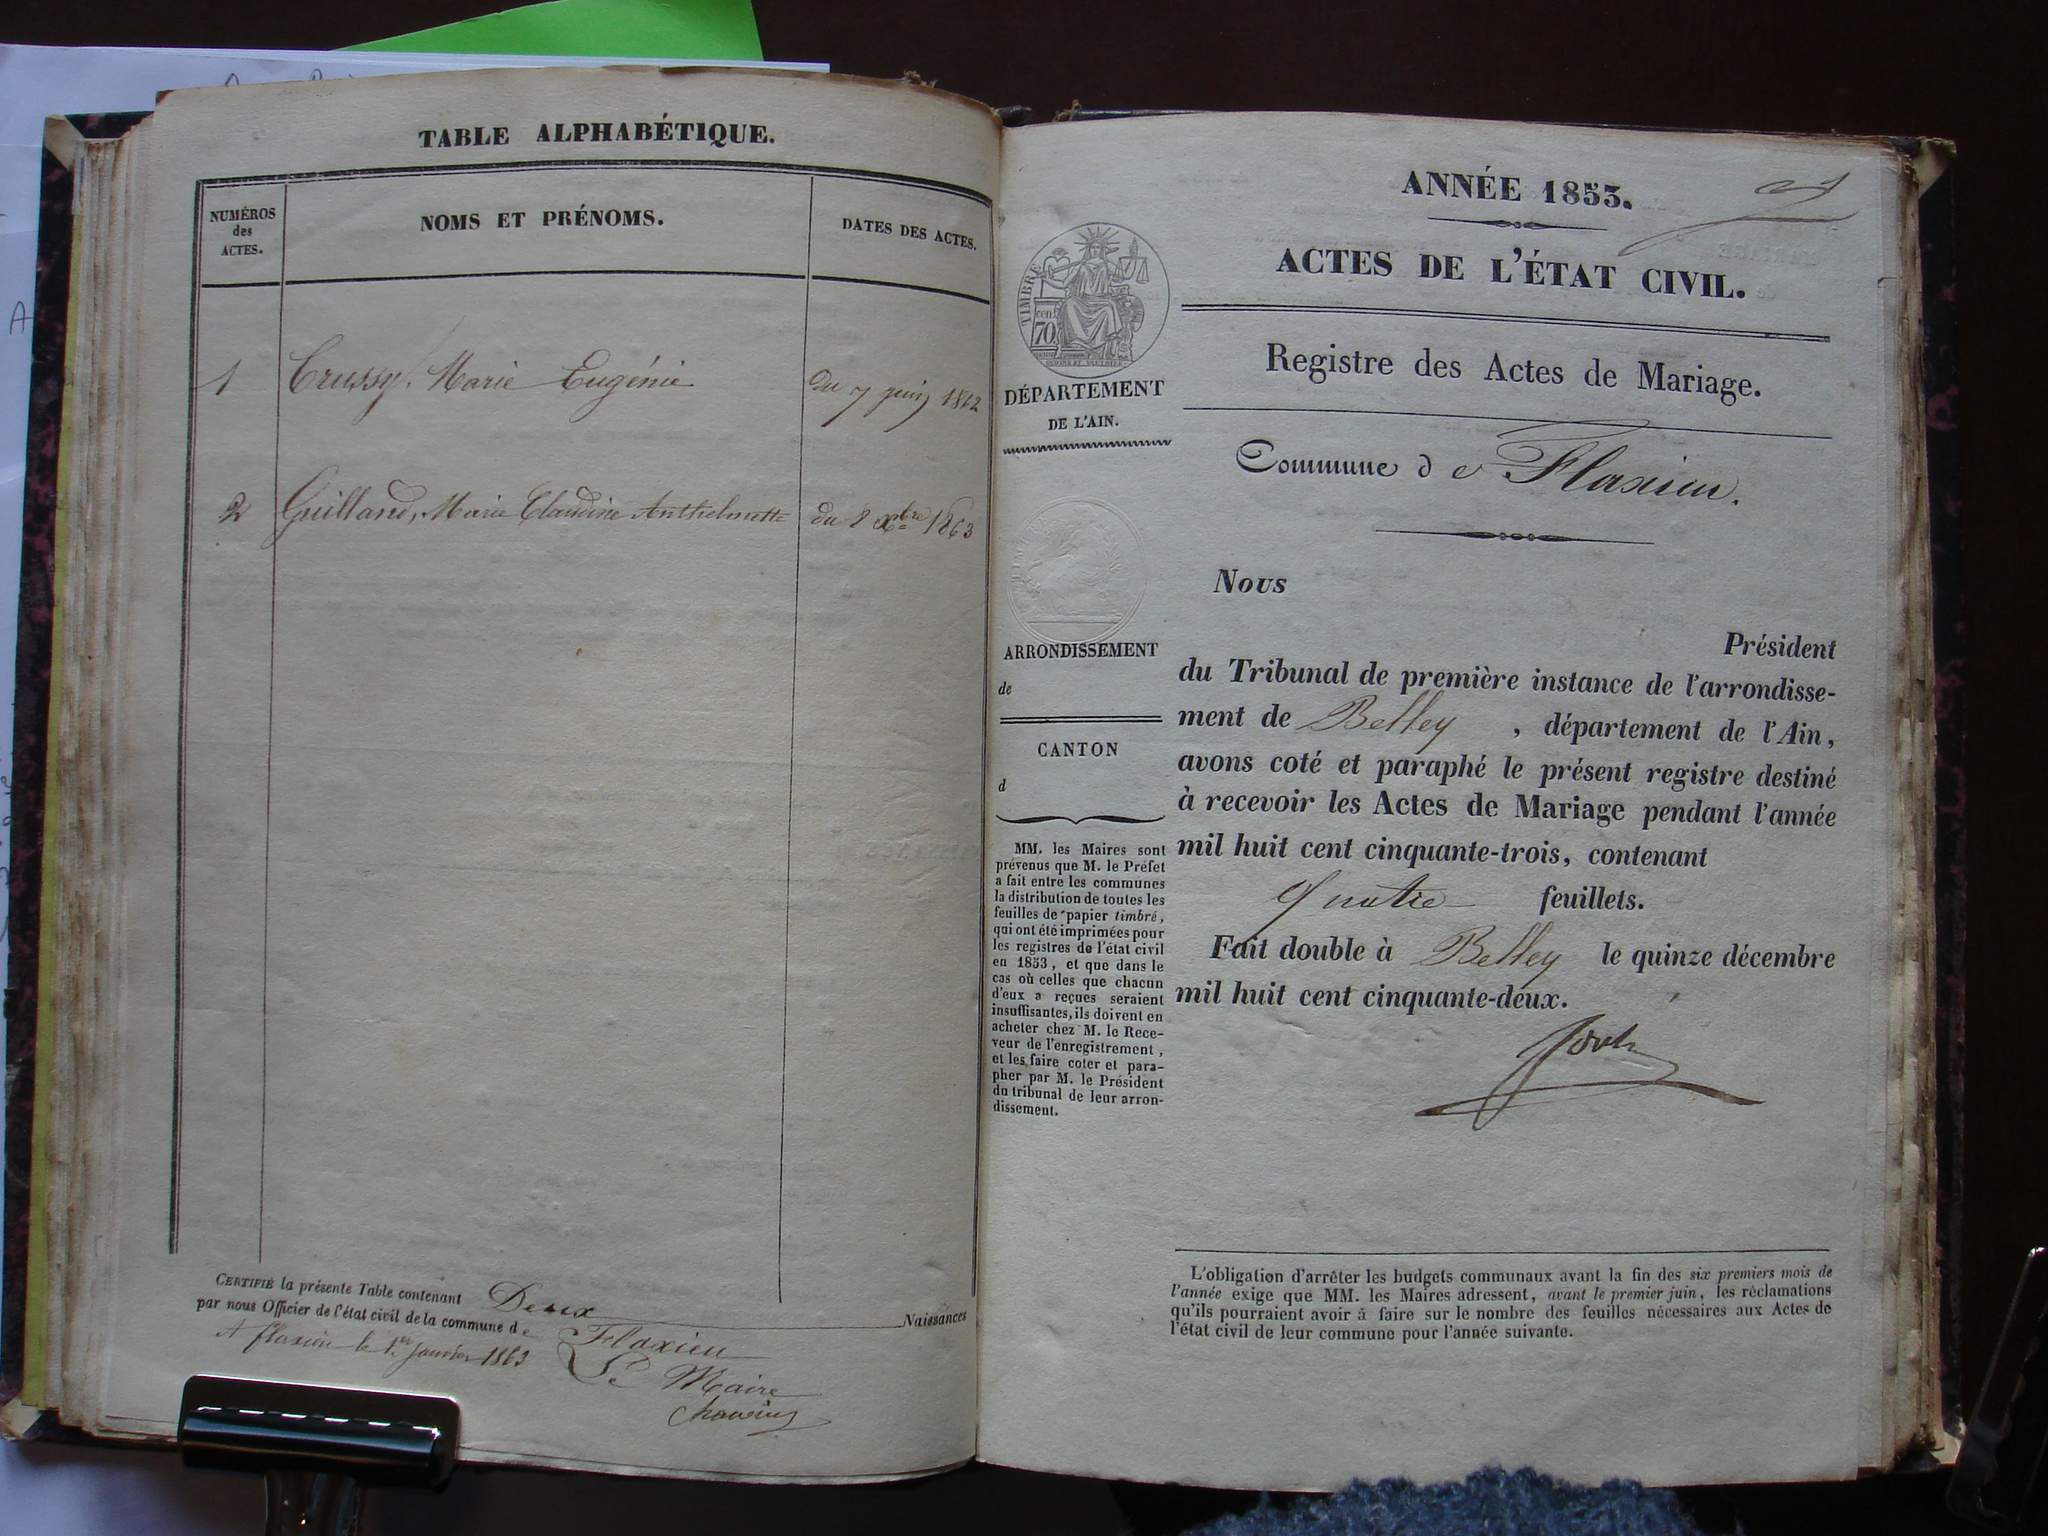 TABLE ALPHABÉTIQUE.
NUMÉROS
des
ACTES.
NOMS ET PRÉNOMS.
DATES DES ACTES.
1 Crussy, Marie Eugénie du 7 juin 1862
2 Guilland, Marie Claudine Anthelmette du 8 xbre 1863
CERTIFIÉ la présente Table contenant Deux Naissances
par nous Officier de l'état civil de la commune de Flaxieu
A flaxieu le 1er janvier 1863
Le Maire
ANNÉE 1853.
ACTES DE L'ÉTAT CIVIL.
TIMBRE
cent
70
DÉPARTEMENT
DE L'AIN.
Registre des Actes de Mariage.
Commune de Flaxieu.
ARRONDISSEMENT
de
CANTON
d
MM. les Maires sont
prévenus que M. le Préfet
a fait entre les communes
la distribution de toutes les
feuilles de papier timbré,
qui ont été imprimées pour
les registres de l'état civil
en 1853, et que dans le
cas où celles que chacun
d'eux a reçues seraient
insuffisantes, ils doivent en
acheter chez M. le Rece-
veur de l'enregistrement,
et les faire coter et para-
pher par M. le Président
du tribunal de leur arron-
dissement.
Nous
Président
du Tribunal de première instance de l'arrondisse-
ment de Belley, département de l'Ain,
avons coté et paraphé le présent registre destiné
à recevoir les Actes de Mariage pendant l'année
mil huit cent cinquante-trois, contenant
quatre feuillets.
Fait double à Belley le quinze décembre
mil huit cent cinquante-deux.
L'obligation d'arrêter les budgets communaux avant la fin des six premiers mois de
l'année exige que MM. les Maires adressent, avant le premier juin, les réclamations
qu'ils pourraient avoir à faire sur le nombre des feuilles nécessaires aux Actes de
l'état civil de leur commune pour l'année suivante.